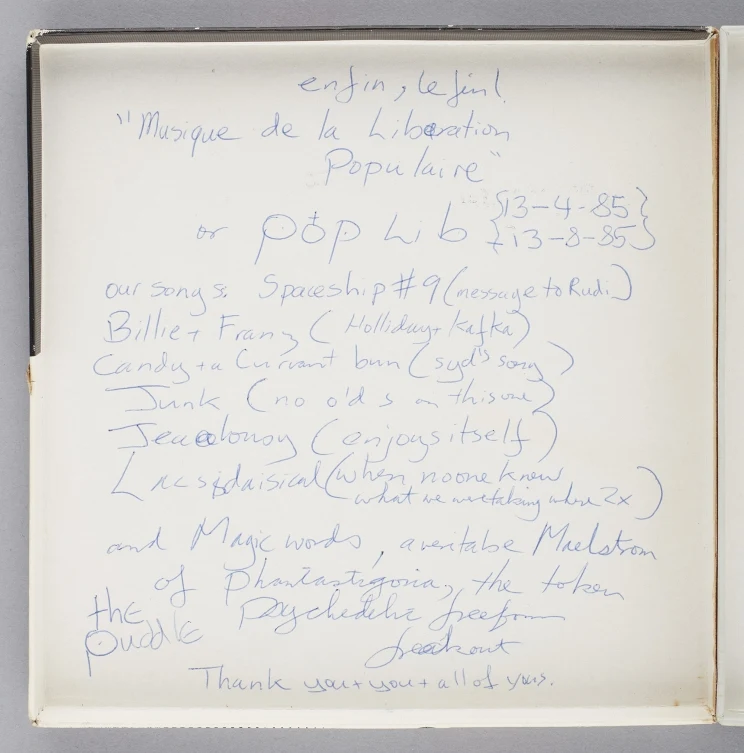 enfin, le fin!
"Musique de la Liberation
Populaire"
or pop Lib {13-4-85}
{13-8-85}
our songs: Spaceship #9 (message to Rudi)
Billie + Franz (Holliday + Kafka)
Candy + a Currant bun (syd's song)
Junk (no o'd s on this one)
Jealousy (enjoys itself)
Lacsidaisical (when no one knew
what we were taking where 2x)
and Magic words, a veritabe Maelstrom
of Phantastigoria, the token
Psychedelic freeform
freakout
the
puddle
Thank you + you + all of yours.